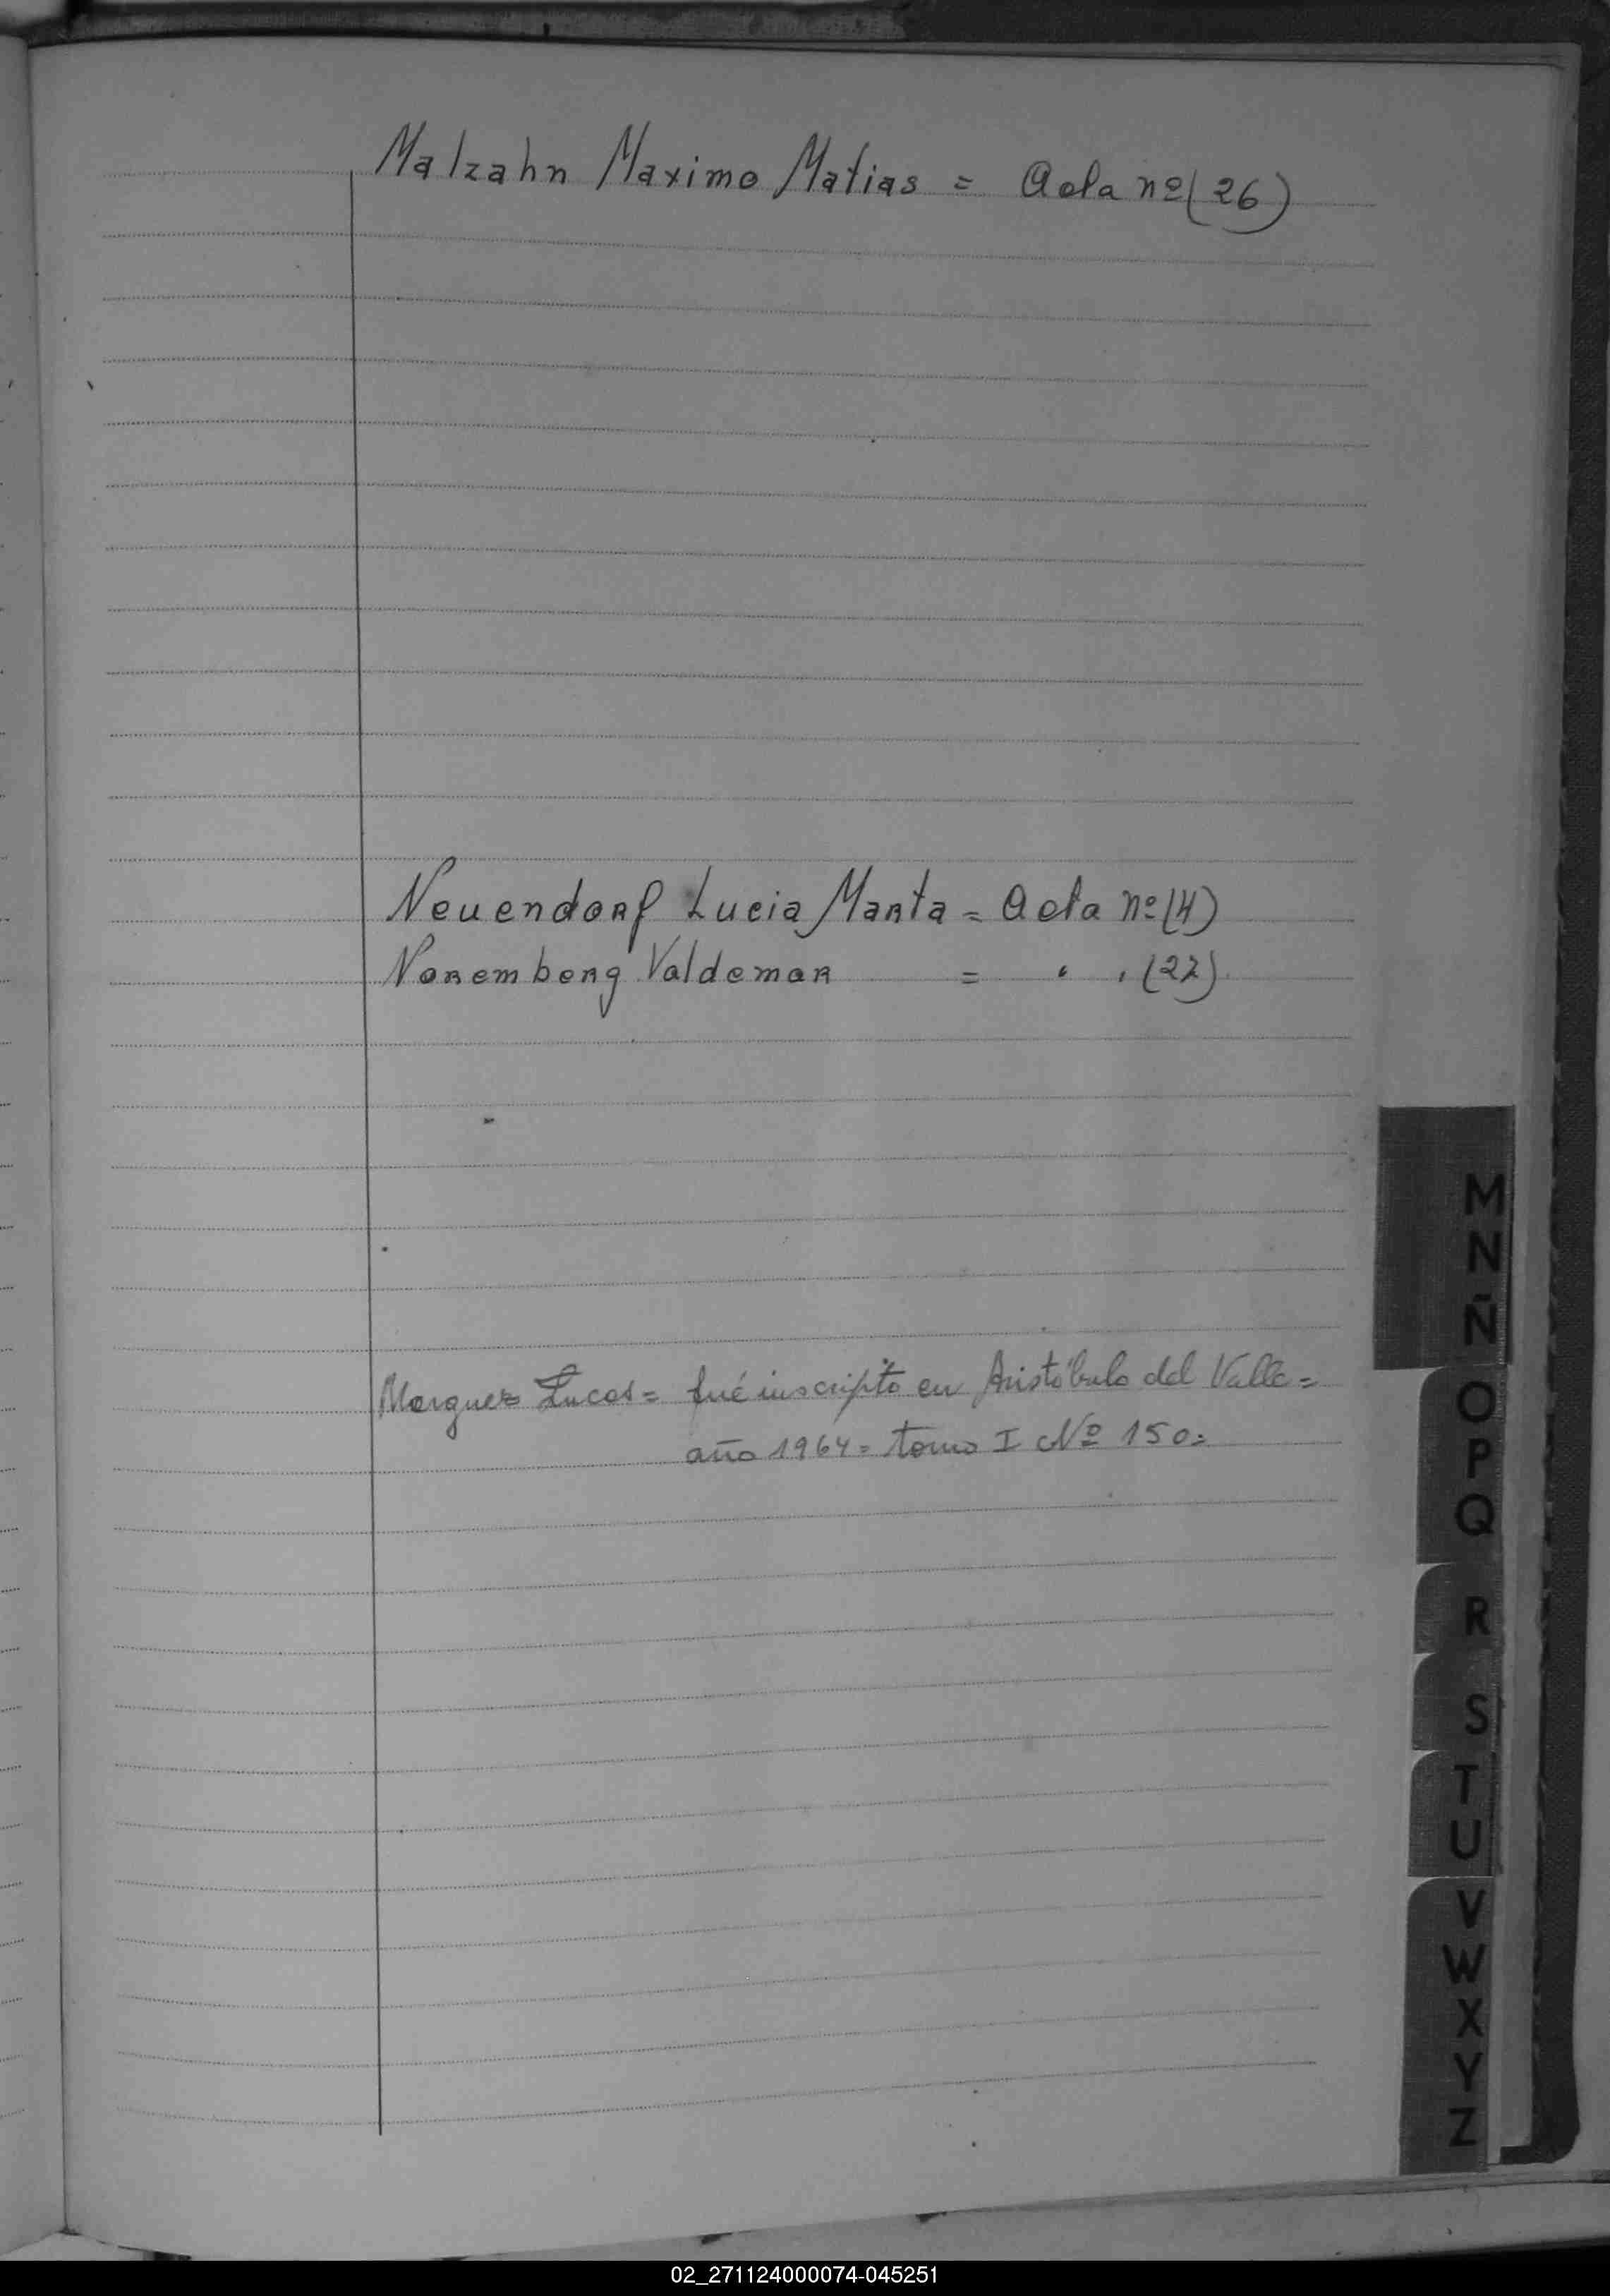 Malzahn Maximo Matias = Acta nº (26)
Neuendorf Lucia Marta = Acta nº (4)
Noremberg Valdemar = " " (22)
Marquez Lucas = fué inscripto en Aristóbulo del Valle =
año 1964 = tomo I Nº 150 =
M
N
Ñ
O
P
Q
R
S
T
U
V
W
X
Y
Z
02_271124000074-045251